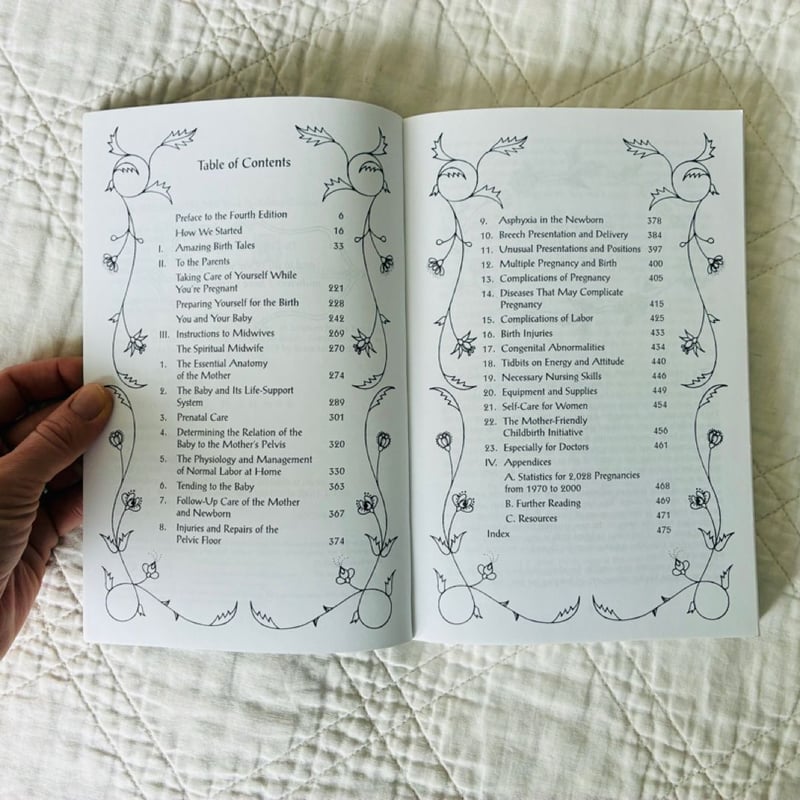 Table of Contents
Preface to the Fourth Edition 6
How We Started 16
I. Amazing Birth Tales 33
II. To the Parents
Taking Care of Yourself While
You're Pregnant 221
Preparing Yourself for the Birth 228
You and Your Baby 242
III. Instructions to Midwives 269
The Spiritual Midwife 270
1. The Essential Anatomy
of the Mother 274
2. The Baby and Its Life-Support
System 289
3. Prenatal Care 301
4. Determining the Relation of the
Baby to the Mother's Pelvis 320
5. The Physiology and Management
of Normal Labor at Home 330
6. Tending to the Baby 363
7. Follow-Up Care of the Mother
and Newborn 367
8. Injuries and Repairs of the
Pelvic Floor 374
9. Asphyxia in the Newborn 378
10. Breech Presentation and Delivery 384
11. Unusual Presentations and Positions 397
12. Multiple Pregnancy and Birth 400
13. Complications of Pregnancy 405
14. Diseases That May Complicate
Pregnancy 415
15. Complications of Labor 425
16. Birth Injuries 433
17. Congenital Abnormalities 434
18. Tidbits on Energy and Attitude 440
19. Necessary Nursing Skills 446
20. Equipment and Supplies 449
21. Self-Care for Women 454
22. The Mother-Friendly
Childbirth Initiative 456
23. Especially for Doctors 461
IV. Appendices
A. Statistics for 2,028 Pregnancies
from 1970 to 2000 468
B. Further Reading 469
C. Resources 471
Index 475